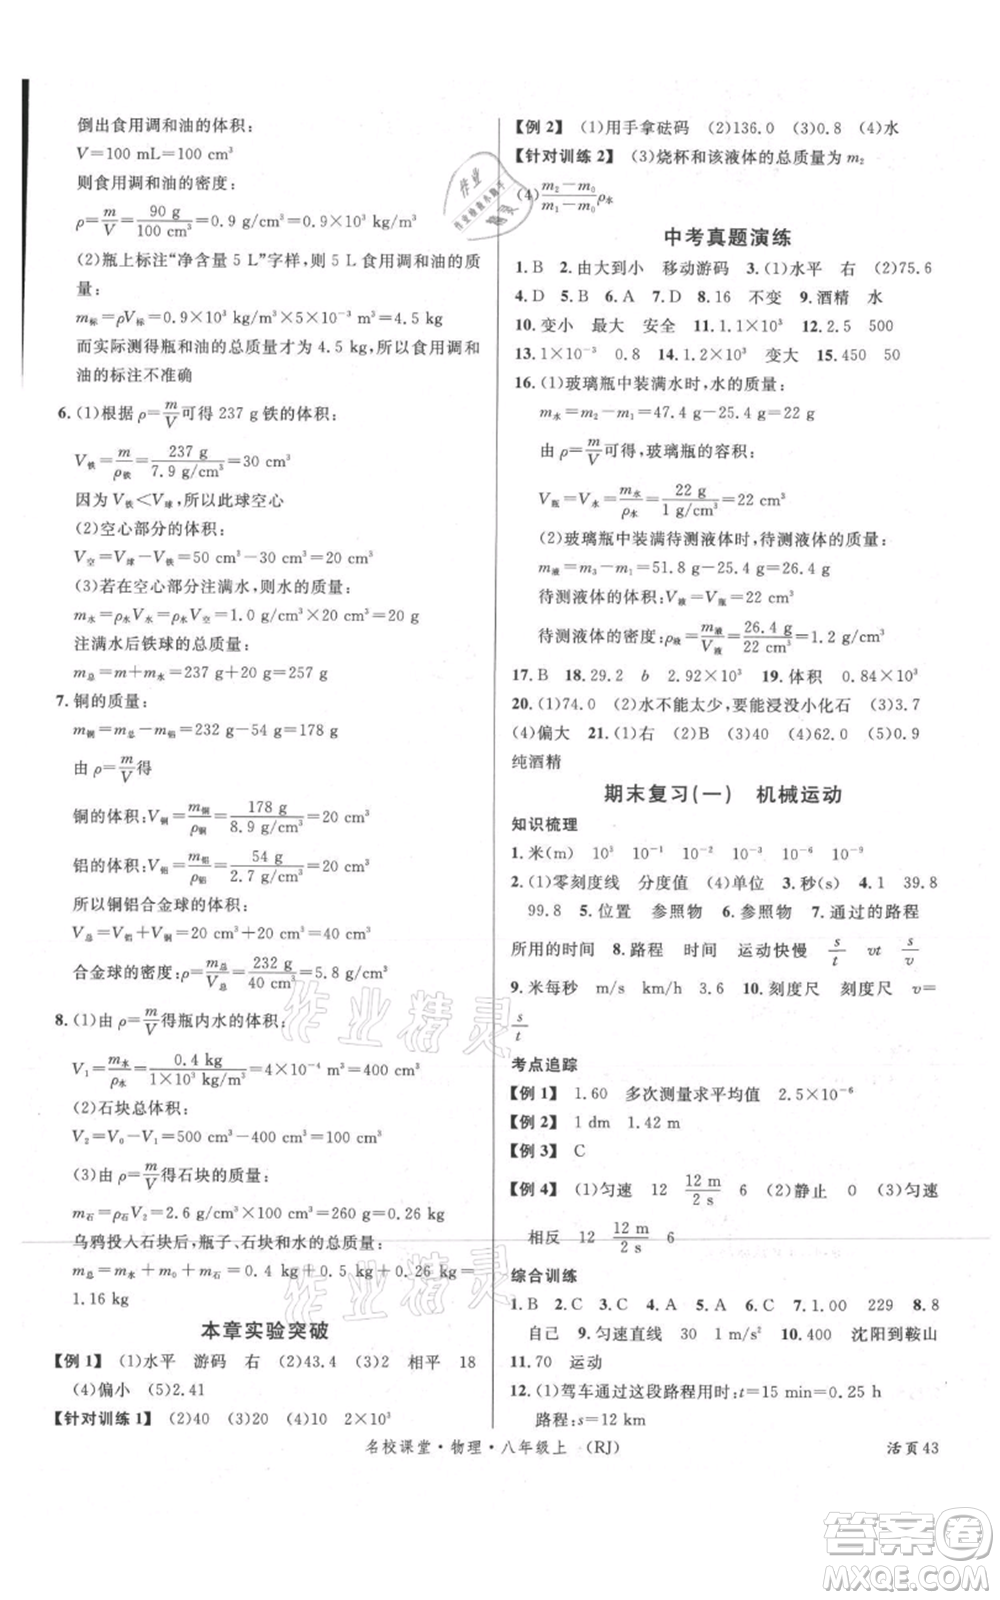 倒出食用调和油的体积:
V=100 mL=100 cm³
则食用调和油的密度:
ρ=m/V=90 g/100 cm³=0.9 g/cm³=0.9×10³ kg/m³
(2)瓶上标注“净含量 5 L”字样,则 5 L 食用调和油的质量:
m标=ρV标=0.9×10³ kg/m³×5×10⁻³ m³=4.5 kg
而实际测得瓶和油的总质量才为 4.5 kg,所以食用调和油的标注不准确
6.(1)根据 ρ=m/V可得 237 g 铁的体积:
V铁=m/ρ铁=237 g/7.9 g/cm³=30 cm³
因为 V铁<V球,所以此球空心
(2)空心部分的体积:
V空=V球-V铁=50 cm³-30 cm³=20 cm³
(3)若在空心部分注满水,则水的质量:
m水=ρ水V水=ρ水V空=1.0 g/cm³×20 cm³=20 g
注满水后铁球的总质量:
m总=m+m水=237 g+20 g=257 g
7.铜的质量:
m铜=m总-m铝=232 g-54 g=178 g
由 ρ=m/V得
铜的体积:V铜=m铜/ρ铜=178 g/8.9 g/cm³=20 cm³
铝的体积:V铝=m铝/ρ铝=54 g/2.7 g/cm³=20 cm³
所以铜铝合金球的体积:
V总=V铝+V铜=20 cm³+20 cm³=40 cm³
合金球的密度:ρ=m总/V总=232 g/40 cm³=5.8 g/cm³
8.(1)由 ρ=m/V得瓶内水的体积:
V₁=m水/ρ水=0.4 kg/1×10³ kg/m³=4×10⁻⁴ m³
(2)石块总体积:
V₂=V₀-V₁=500 cm³-400 cm³=100 cm³
(3)由 ρ=m/V得石块的质量:
m石=ρ石V₂=2.6 g/cm³×100 cm³=260 g=0.26 kg
乌鸦投入石块后,瓶子、石块和水的总质量:
m总=m水+m₀+m石=0.4 kg+0.5 kg+0.26 kg=
1.16 kg
本章实验突破
【例 1】 (1)水平 游码 右 (2)43.4 (3)2 相平 18
(4)偏小 (5)2.41
【针对训练 1】 (2)40 (3)20 (4)10 2×10³
【例 2】 (1)用手拿砝码 (2)136.0 (3)0.8 (4)水
【针对训练 2】 (3)烧杯和该液体的总质量为 m₂
(4)m₂-m₀/m₁-m₀ρ水
中考真题演练
1.B 2.由大到小 移动游码 3.(1)水平 右 (2)75.6
4.D 5.B 6.A 7.D 8.16 不变 9.酒精 水
10.变小 最大 安全 11.1.1×10³ 12.2.5 500
13.1×10⁻³ 0.8 14.1.2×10³ 变大 15.450 50
16.(1)玻璃瓶中装满水时,水的质量:
m水=m₂-m₁=47.4 g-25.4 g=22 g
由 ρ=m/V可得,玻璃瓶的容积:
V瓶=V水=m水/ρ水=22 g/1 g/cm³=22 cm³
(2)玻璃瓶中装满待测液体时,待测液体的质量:
m液=m₃-m₁=51.8 g-25.4 g=26.4 g
待测液体的体积:V液=V瓶=22 cm³
待测液体的密度:ρ液=m液/V液=26.4 g/22 cm³=1.2 g/cm³
17.B 18.29.2 b 2.92×10³ 19.体积 0.84×10³
20.(1)74.0 (2)水不能太少,要能浸没小化石 (3)3.7
(4)偏大 21.(1)右 (2)B (3)40 (4)62.0 (5)0.9
纯酒精
期末复习(一) 机械运动
知识梳理
1.米(m) 10³ 10⁻¹ 10⁻² 10⁻³ 10⁻⁶ 10⁻⁹
2.(1)零刻度线 分度值 (4)单位 3.秒(s) 4.1 39.8
99.8 5.位置 参照物 6.参照物 7.通过的路程
所用的时间 8.路程 时间 运动快慢 s/t vt s/v
9.米每秒 m/s km/h 3.6 10.刻度尺 刻度尺 v=
s/t
考点追踪
【例 1】 1.60 多次测量求平均值 2.5×10⁻⁶
【例 2】 1 dm 1.42 m
【例 3】 C
【例 4】 (1)匀速 12 12 m/2 s 6 (2)静止 0 (3)匀速
相反 12 12 m/2 s 6
综合训练
1.B 2.C 3.B 4.A 5.A 6.A 7.1.00 229 8.8
自己 9.匀速直线 30 1 m/s² 10.120 沈阳到鞍山
11.70 运动
12.(1)驾车通过这段路程用时:t=15 min=0.25 h
路程:s=12 km
名校课堂·物理·八年级上 (RJ)
活页 43
作业精灵
作业精灵
答案卷
MXQE.COM